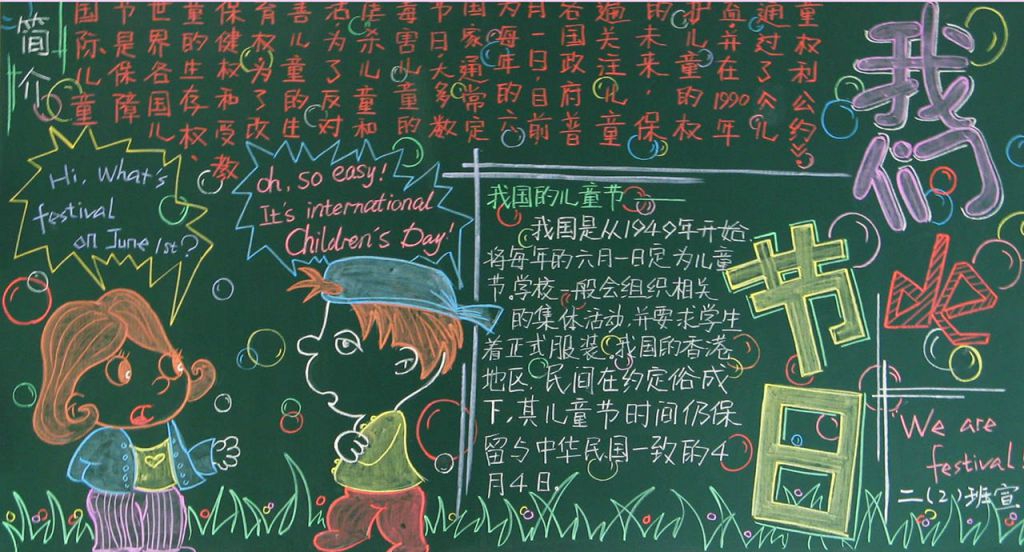 简介
国际儿童
节是保障
世界各国儿
童的生存权、
保健权和受教
育权为了改
善儿童的生
活为了反对
虐杀儿童和
毒害儿童的
节日大多数
国家通常定
为每年的六
月一日,目前
各国政府普
遍关注儿童
的未来,保
护儿童的权
益并在1990年
通过了《儿
童权利公约》
我们
的
节日
Hi, What's
festival
on June 1st?
oh, so easy!
It's international
Children's Day!
我国的儿童节——
我国是从1949年开始
将每年的六月一日定为儿童
节.学校一般会组织相关
的集体活动,并要求学生
着正式服装.我国的香港
地区民间在约定俗成
下,其儿童节时间仍保
留与中华民国一致的4
月4日.
"We are
festival!
二(2)班宣